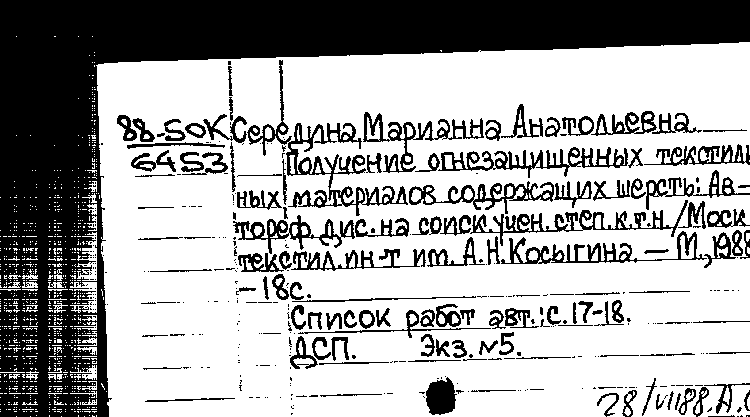 88-50K Середина, Марианна Анатольевна
6453 Получение огнезащищенных текстиль
ных материалов содержащих шерсть: Ав-
тореф. дис. на соиск. учен. степ. к.т.н. / Моск
текстил. ин-т им. А.Н. Косыгина. — М., 1988
– 18с.
Список работ авт.: с. 17-18.
ДСП. Экз. №5.
28/VII88. А.